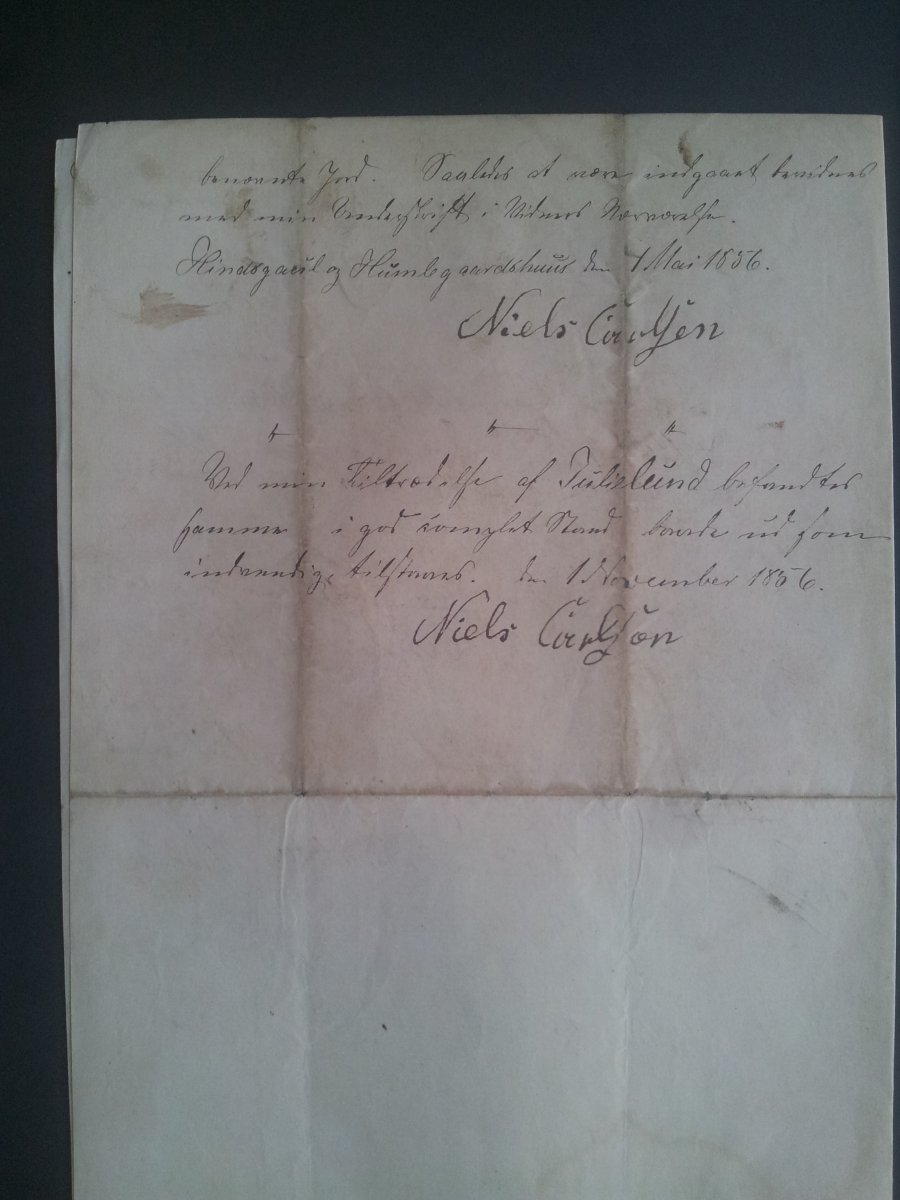 benævnte Jord. Saaledes at være indgaaet bevidnes
med min Underskrift i Vidners Nærværelse.
Hindsgaul og Humlegaardshuus den 1 Mai 1856.
Niels Carlsen
" " "
Ved min Tiltrædelse af Julielund befandtes
samme i god complet Stand baade ud som
indvendig tilstaaes. den 1 November 1856.
Niels Carlsen